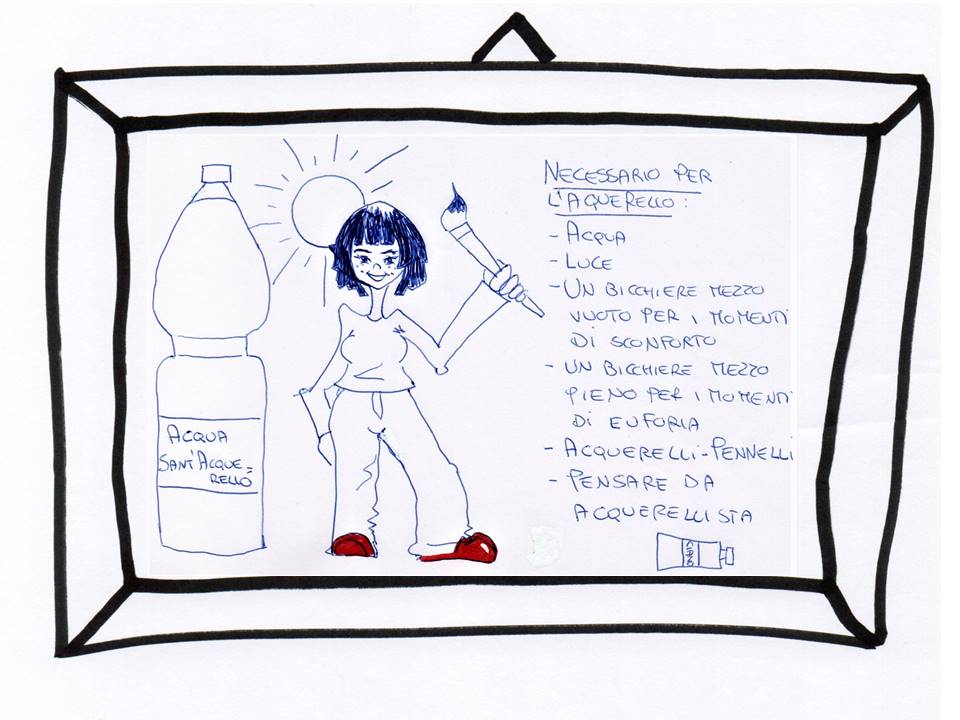 NECESSARIO PER
L'AQUERELLO:
- ACQUA
- LUCE
- UN BICCHIERE MEZZO
VUOTO PER I MOMENTI
DI SCONFORTO
- UN BICCHIERE MEZZO
PIENO PER I MOMENTI
DI EUFORIA
- ACQUERELLI-PENNELLI
- PENSARE DA
ACQUERELLISTA
ACQUA
SANT'ACQUE=
RELLO